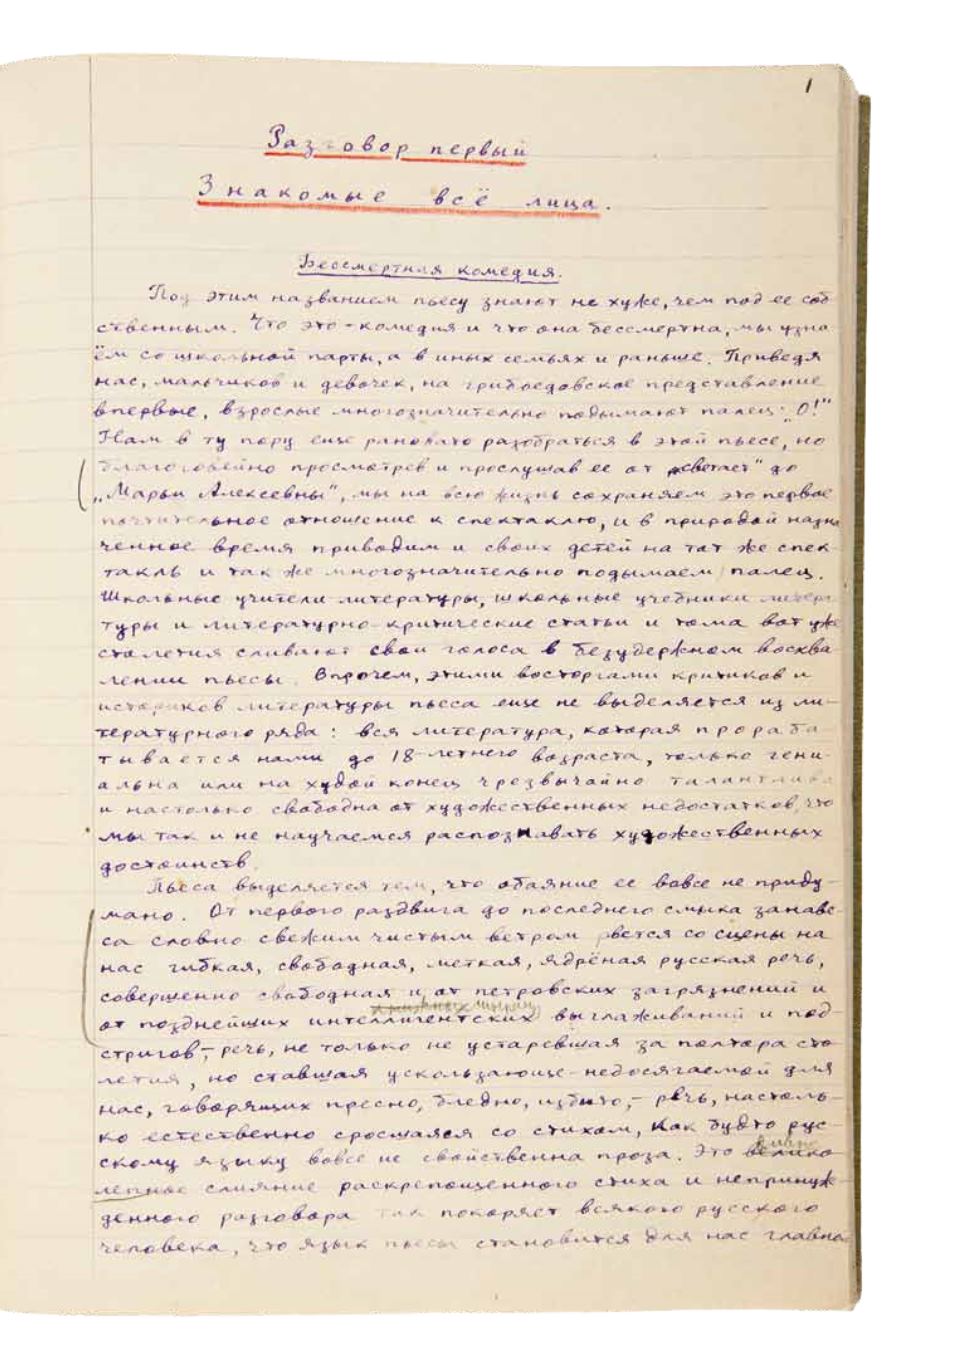 1
Разговор первый
Знакомые всё лица.
Бессмертная комедия.
Под этим названием пьесу знают не хуже, чем под ее соб
ственным. Что это - комедия и что она бессмертна, мы узна
ём со школьной парты, а в иных семьях и раньше. Приведя
нас, мальчиков и девочек, на грибоедовское представление
впервые, взрослые многозначительно подымают палец: „О!"
Нам в ту пору еще рановато разобраться в этой пьесе, но
благоговейно просмотрев и прослушав ее от „светает" до
„Марьи Алексевны", мы на всю жизнь сохраняем это первое
почтительное отношение к спектаклю, и в природой назна
ченное время приводим и своих детей на тот же спек-
такль и так же многозначительно подымаем палец.
Школьные учители литературы, школьные учебники литера
туры и литературно-критические статьи и тома вот уже
столетия сливают свои голоса в безудержном восхва-
лении пьесы. Впрочем, этими восторгами критиков и
историков литературы пьеса еще не выделяется из ли-
тературного ряда: вся литература, которая прораба-
тывается нами до 18-летнего возраста, только гени-
альна или на худой конец чрезвычайно талантлива
и настолько свободна от художественных недостатков, что
мы так и не научаемся распознавать художественных
достоинств.
Пьеса выделяется тем, что обаяние ее вовсе не приду-
мано. От первого раздвига до последнего смыка занаве-
са словно свежим чистым ветром рвется со сцены на
нас гибкая, свободная, меткая, ядрёная русская речь,
совершенно свободная и от петровских загрязнений и
от позднейших интеллигентских выглаживаний и под-
стригов,- речь, не только не устаревшая за полтора сто-
летия, но ставшая ускользающе-недосягаемой для
нас, говорящих пресно, бледно, избито,- речь, настоль-
ко естественно сросшаяся со стихом, как будто рус-
скому языку вовсе не свойственна проза. Это дивно
велико-
лепное слияние раскрепощенного стиха и непринуж-
денного разговора так покоряет всякого русского
человека, что язык пьесы становится для нас главно